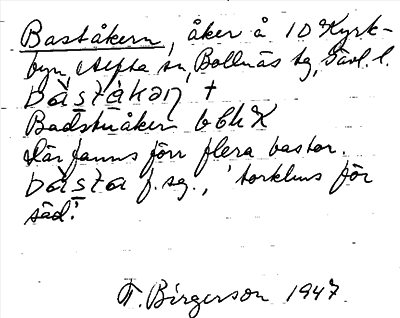 Baståkern, åker å 1 D Kyrk-
byn, Alfta sn, Bollnäs tg, Gävl. l.
bàstákaṇ †
Badstuåker b Ch K
Där fanns förr flera bastor.
bàsta f. sg., 'torkhus för
säd.'
F. Birgerson 1947.